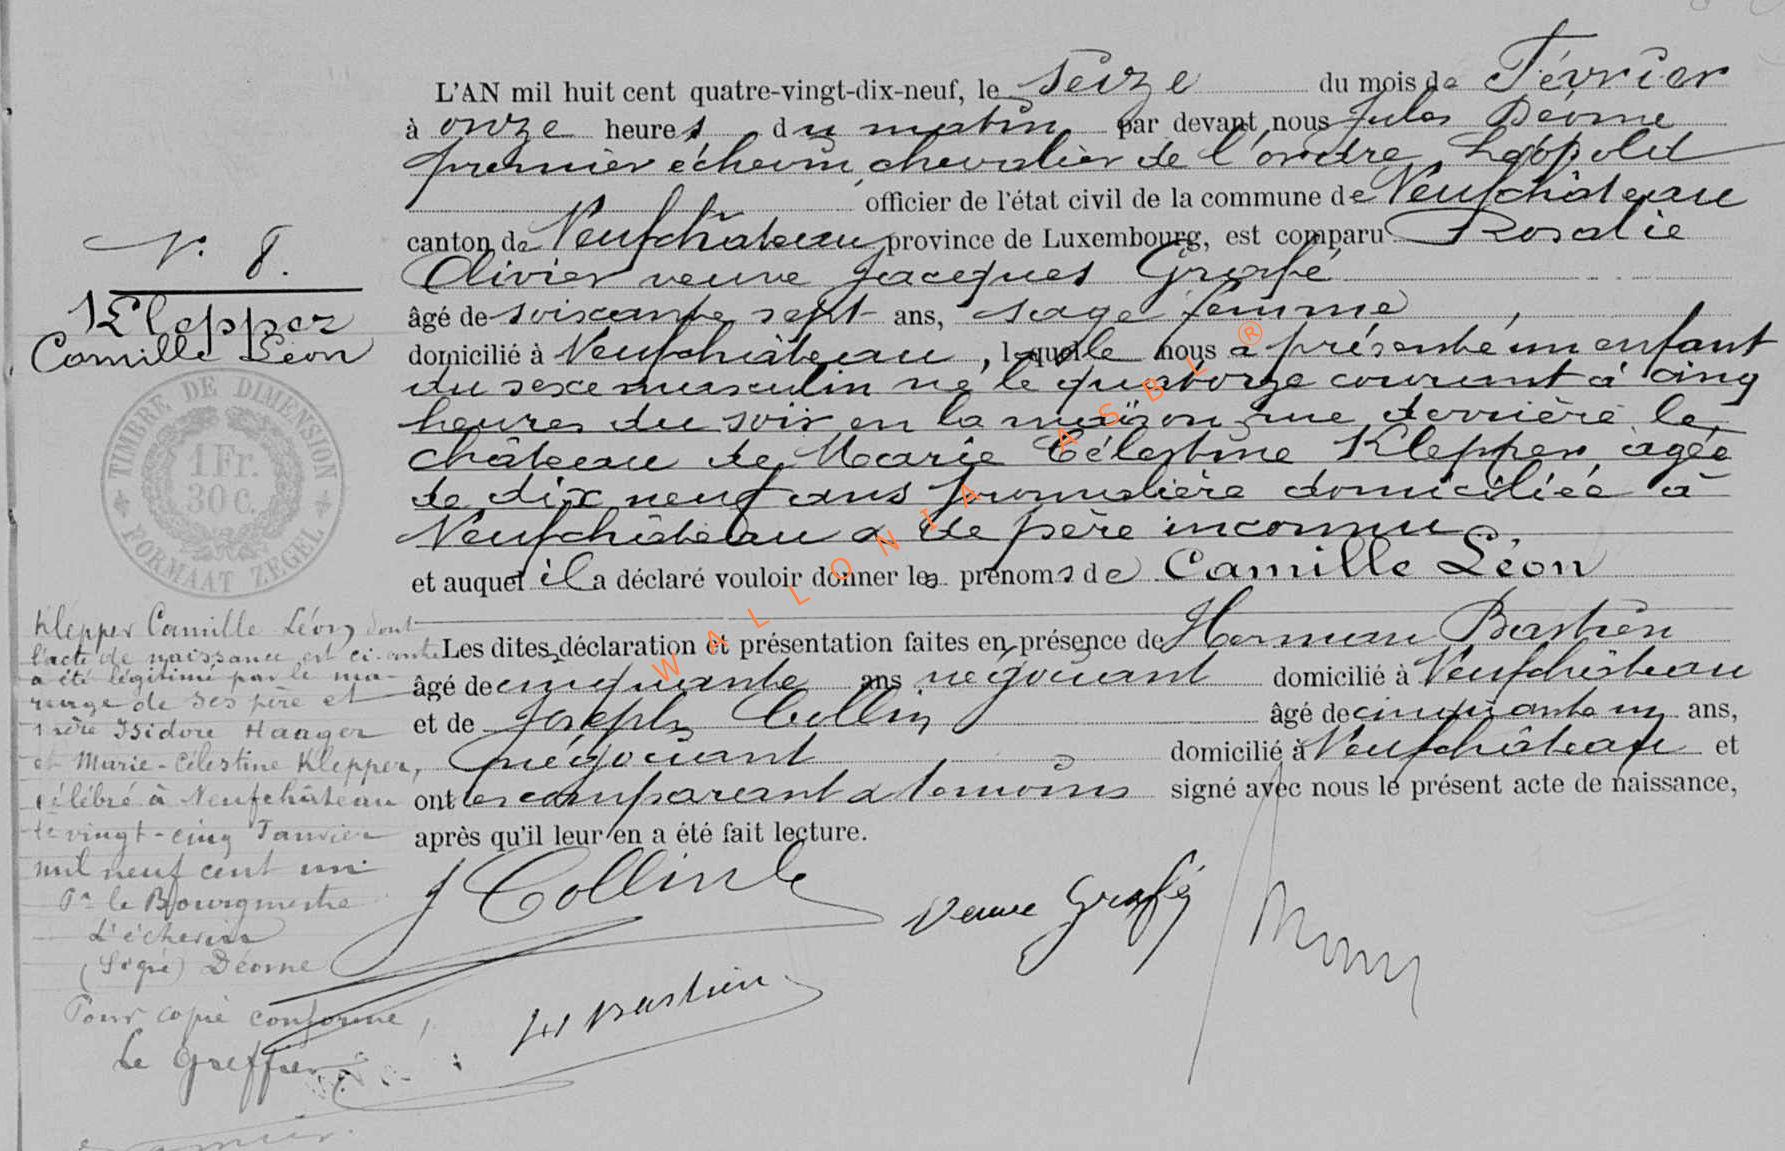 L'AN mil huit cent quatre-vingt-dix-neuf, le seize du mois de Février
à onze heures du matin par devant nous Jules Déome
premier échevin, chevalier de l'ordre Léopold
officier de l'état civil de la commune de Neufchâteau
canton de Neufchâteau, province de Luxembourg, est comparu Rosalie
Olivier veuve Jacques Grafé
âgé de soixante sept ans, sage femme,
domicilié à Neufchâteau, laquelle nous a présenté un enfant
du sexe masculin né le quatorze courant à cinq
heures du soir en la maison rue derrière le
château de Marie Célestine Klepper, agée
de dix neuf ans journalière domiciliée à
Neufchâteau & de père inconnu
et auquel il a déclaré vouloir donner les prénoms de Camille Léon
Les dites déclaration et présentation faites en présence de Herman Bastien
âgé de cinquante ans négociant domicilié à Neufchâteau
et de Joseph Collin âgé de cinquante un ans,
négociant domicilié à Neufchâteau et
ont les comparant & témoins signé avec nous le présent acte de naissance,
après qu'il leur en a été fait lecture.
J Collin
Veuve Grafé
Bastien
N° 8.
Klepper
Camille Léon
TIMBRE DE DIMENSION
1 Fr.
30 C.
FORMAAT ZEGEL
Klepper Camille Léon dont
l'acte de naissance est ci-contre
a été légitimé par le ma-
riage de ses père et
mère Isidore Haager
et Marie-Célestine Klepper,
célébré à Neufchâteau
le vingt-cinq Janvier
mil neuf cent un
Pr le Bourgmestre
L'échevin
(Signé) Déome
Pour copie conforme,
Le Greffier
WALLONIA ASBL ®